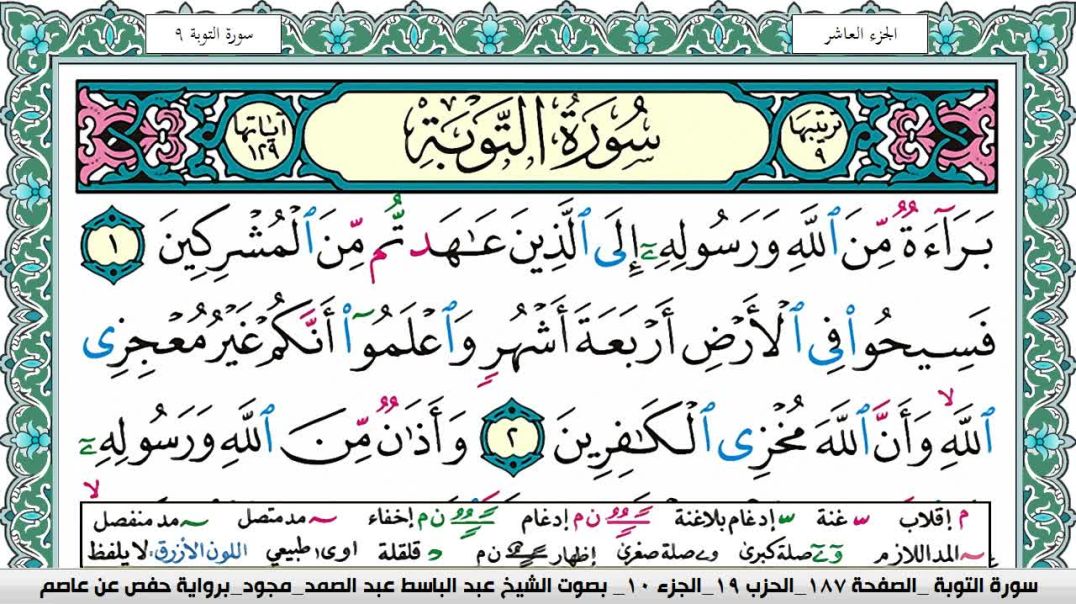 الجزء العاشر
سورة التوبة ٩
ترتيبها ٩
سُورَةُ التَّوْبَةِ
آياتها ١٢٩
بَرَآءَةٌ مِّنَ ٱللَّهِ وَرَسُولِهِۦٓ إِلَى ٱلَّذِينَ عَٰهَدتُّم مِّنَ ٱلْمُشْرِكِينَ ١
فَسِيحُوا۟ فِى ٱلْأَرْضِ أَرْبَعَةَ أَشْهُرٍ وَٱعْلَمُوٓا۟ أَنَّكُمْ غَيْرُ مُعْجِزِى
ٱللَّهِ ۙ وَأَنَّ ٱللَّهَ مُخْزِى ٱلْكَٰفِرِينَ ٢ وَأَذَٰنٌ مِّنَ ٱللَّهِ وَرَسُولِهِۦٓ
م إقلاب غنة إدغام بلاغنة ن م إدغام ن م إخفاء مد متصل مد منفصل
المد اللازم صلة كبرى صلة صغرى إظهار ن م قلقلة اوى، طبيعي اللون الأزرق: لا يلفظ
سورة التوبة _الصفحة ١٨٧_الحزب ١٩_الجزء ١٠_ بصوت الشيخ عبد الباسط عبد الصمد_مجود_برواية حفص عن عاصم